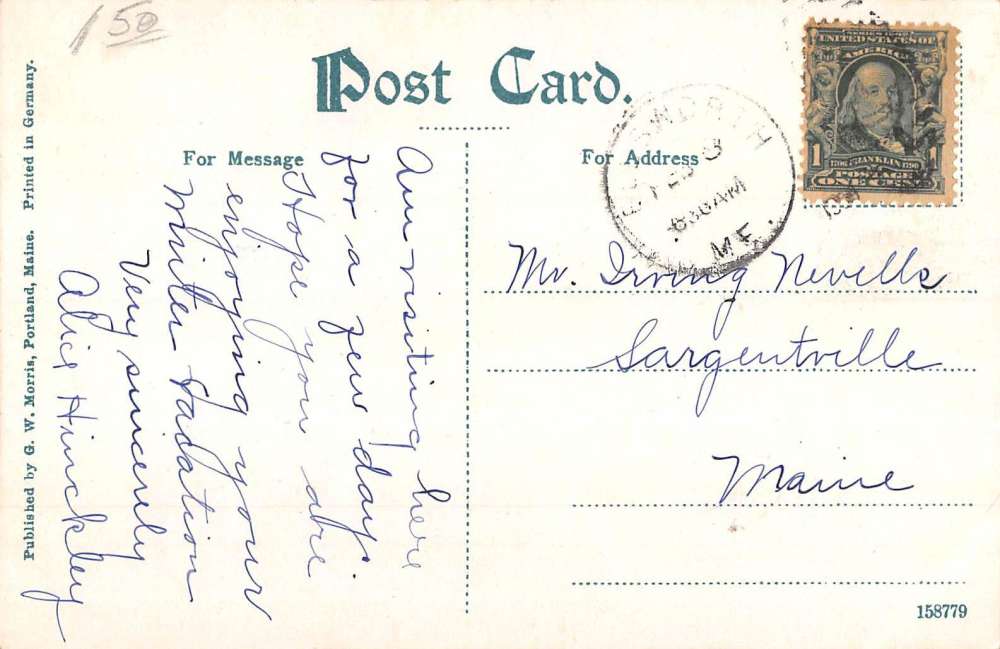 150
Post Card.
For Message
For Address
Am visiting here
for a few days.
Hope you are
enjoying your
Winter Vacation
Very sincerely
Alice Hinckley
Mr. Irving Nevells
Sargentville
Maine
ELLSWORTH
FEB 8
630AM
ME.
SERIES 1902
UNITED STATES OF
AMERICA
1 1706 FRANKLIN 1790 1
POSTAGE
ONE CENT
Published by G. W. Morris, Portland, Maine. Printed in Germany.
158779